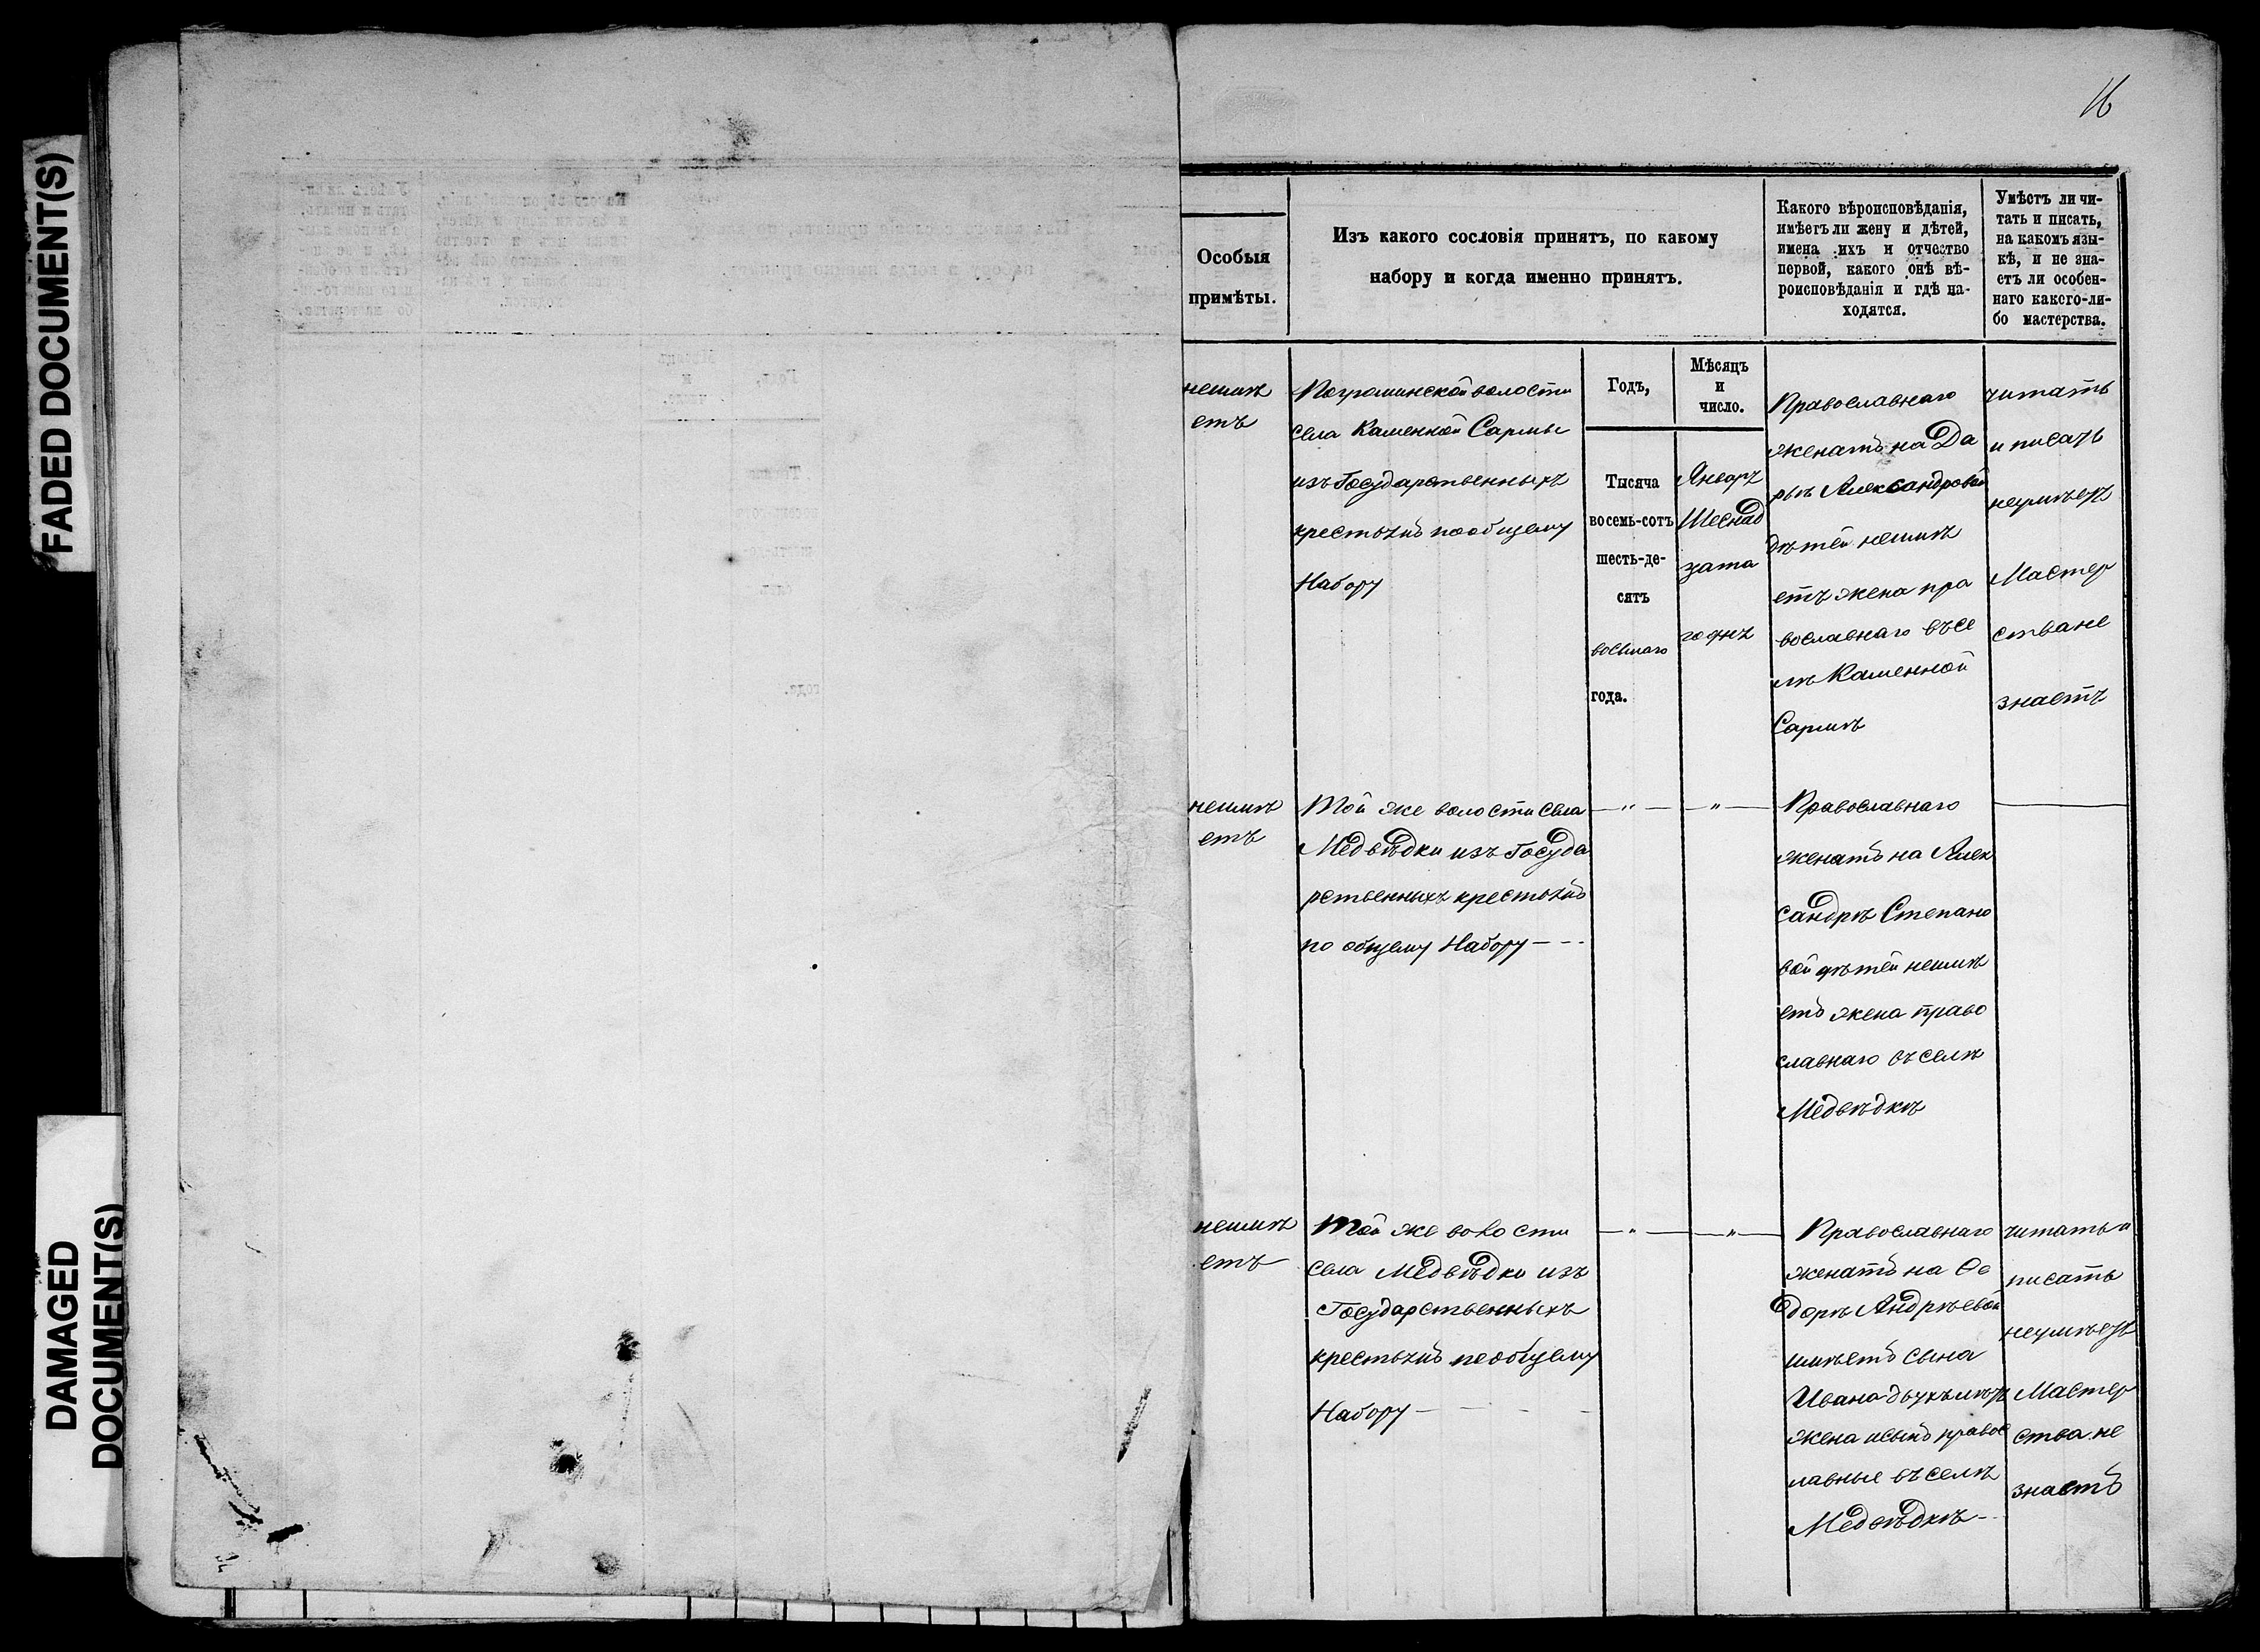 FADED DOCUMENT(S)
DAMAGED
DOCUMENT(S)
16
Особыя
примѣты.
Изъ какого сословія принятъ, по какому
набору и когда именно принятъ.
Какого вѣроисповѣданія,
имѣетъ ли жену и дѣтей,
имена ихъ и отчество
первой, какого онѣ вѣ-
роисповѣданія и гдѣ на-
ходятся.
Умѣетъ ли чи-
тать и писать,
на какомъ язы-
кѣ, и не зна-
етъ ли особен-
наго какого-ли-
бо мастерства.
неимѣ
етъ
Погроминской волости
села Каменной Сармы
изъ Государственныхъ
крестьянъ пообщему
Набору
Годъ,
Тысяча
восемь-сотъ
шесть-де-
сятъ
восьмаго
года.
Мѣсяцъ
и
число.
Январь
Шеснад
цата
го дня
Православнаго
женатъ на Да
рьѣ Александровой
дѣтей неимѣ
етъ жена пра
вославнаго въ се
лѣ Каменной
Сармѣ
читать
и писать
неумѣетъ
Мастер
ства не
знаетъ
неимѣ
етъ
Той же волости села
Медвѣдки изъ Госуда
рственныхъ крестьянъ
по общему Набору - - -
— " —
— " —
Православнаго
женатъ на Алек
сандрѣ Степано
вой дѣтей неимѣ
етъ жена право
славнаго въ селѣ
Медвѣдкѣ
неимѣ
етъ
Той же волости
села Медвѣдки изъ
Государственныхъ
крестьянъ пообщему
Набору - - - -
— " —
— " —
Православнаго
женатъ на Ѳе
дорѣ Андрѣевой
имѣетъ сына
Ивана двухъ лѣтъ
жена исынъ правос
лавные въ селѣ
Медвѣдкѣ -
читать и
писать
неумѣетъ
Мастер
ства не
знаетъ